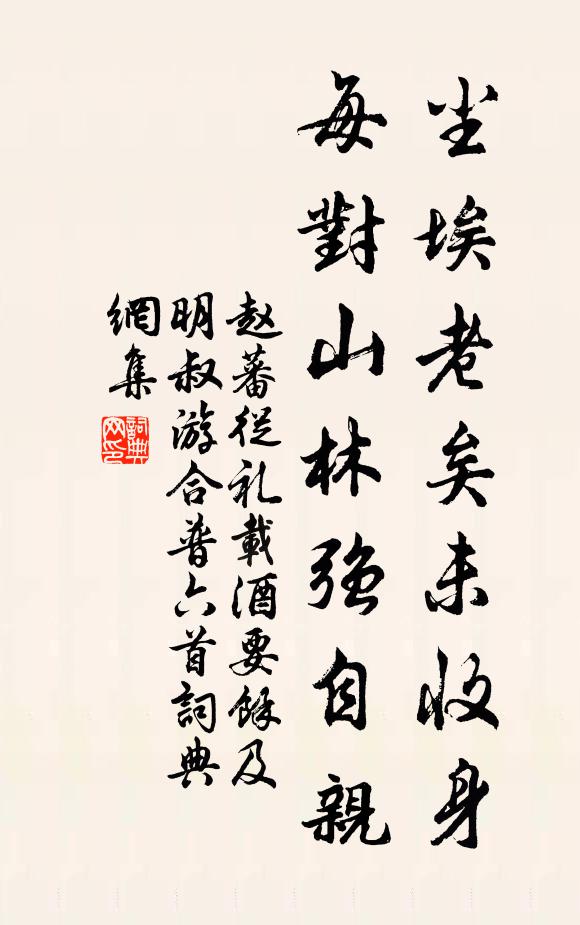 尘埃老矣未收身
每對山林強自親
赵蕃從礼載酒要餘及
明叔游合普六首詞典
網集
詞典网印